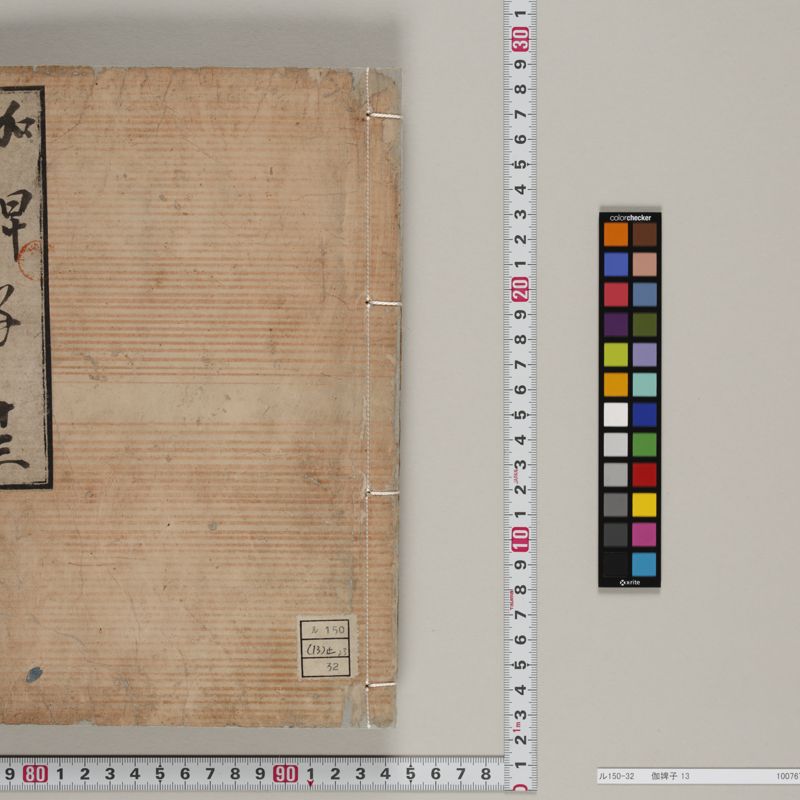 伽婢子 十三
ル 150
(13)止
32
colorchecker
x-rite
1
30
9
8
7
6
5
4
3
2
1
20
9
8
7
6
5
4
3
2
1
10
9
8
7
6
5
4
3
2
1
9 80 1 2 3 4 5 6 7 8 9 90 1 2 3 4 5 6 7 8
1m
ル150-32 伽婢子 13 10076